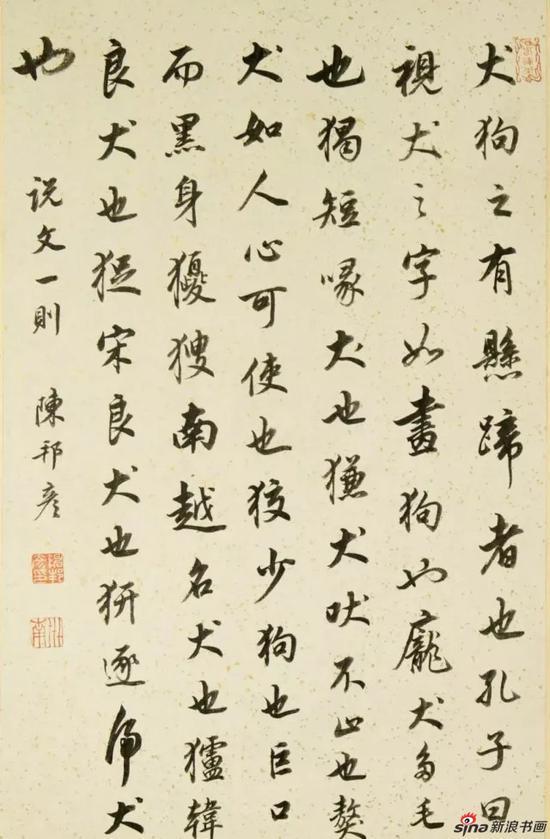 犬狗之有懸蹄者也孔子曰
視犬之字如畫狗也龐犬多毛
也猲短喙犬也㺌犬吠不止也獒
犬如人心可使也狡少狗也巨口
而黑身獿獀南越名犬也獹韓
良犬也猣宋良犬也猠逐虎犬
也
説文一則 陳邦彦
sina新浪书画